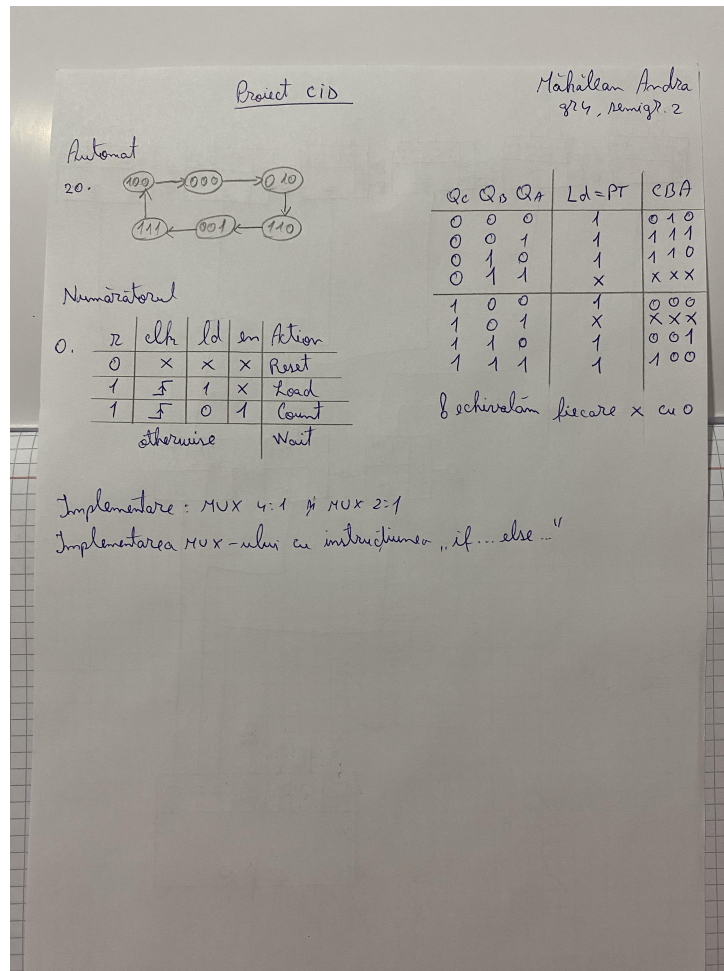 Proiect CID
Măhălean Andra
gr 4, semigr. 2
Automat
20. 100 000 010
111 001 110
QC QB QA Ld=PT CBA
0 0 0 1 0 1 0
0 0 1 1 1 1 1
0 1 0 1 1 1 0
0 1 1 x x x x
1 0 0 1 0 0 0
1 0 1 x x x x
1 1 0 1 0 0 1
1 1 1 1 1 0 0
echivalăm fiecare x cu 0
Numărătorul
0. r clk ld en Action
0 x x x Reset
1 1 x Load
1 0 1 Count
otherwise Wait
Implementare: MUX 4:1 și MUX 2:1
Implementarea MUX-ului cu instrucțiunea „if...else..."